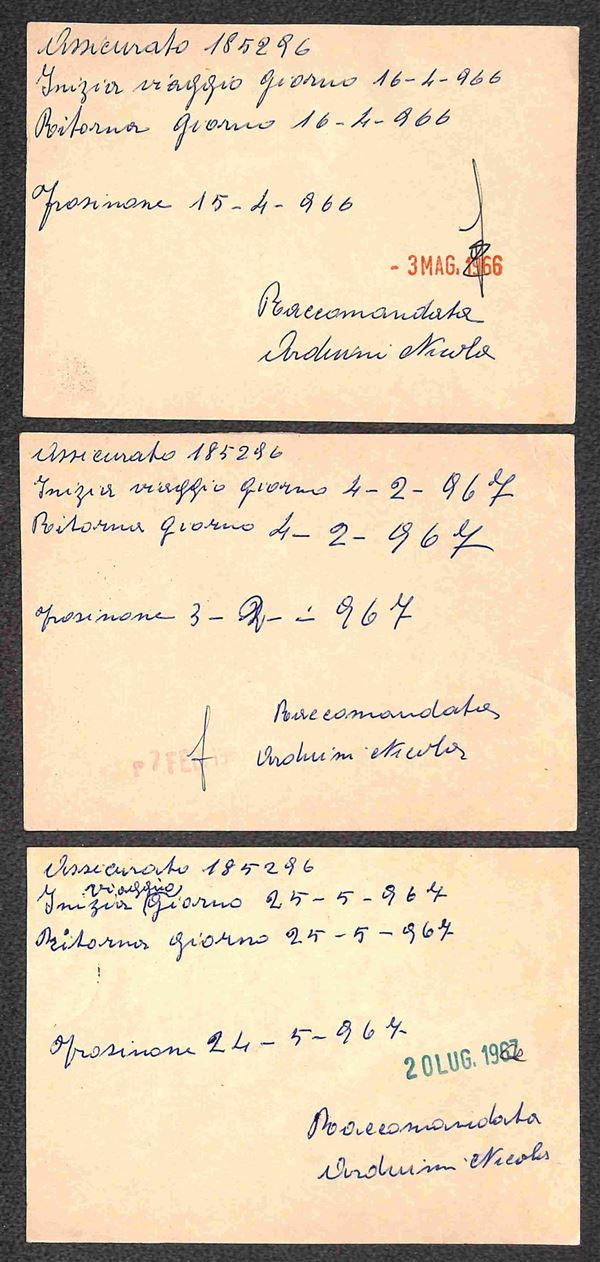 Assicurato 185296
Inizia viaggio giorno 16-4-966
Ritorna giorno 16-4-966
Frosinone 15-4-966
- 3 MAG. 1966
Raccomandata
Arduini Nicola
Assicurato 185296
Inizia viaggio giorno 4-2-967
Ritorna giorno 4-2-967
Frosinone 3-2-967
7 FEB
Raccomandata
Arduini Nicola
Assicurato 185296
viaggio
Inizia giorno 25-5-967
Ritorna giorno 25-5-967
Frosinone 24-5-967
20 LUG. 1967
Raccomandata
Arduini Nicola